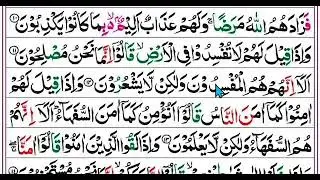 فَزَادَهُمُ اللّٰهُ مَرَضًا ۚ وَلَهُمْ عَذَابٌ اَلِيْمٌ ۙ۬ بِمَا كَانُوْا يَكْذِبُوْنَ ۝۱۰
وَاِذَا قِيْلَ لَهُمْ لَا تُفْسِدُوْا فِى الْاَرْضِ ۙ قَالُوْۤا اِنَّمَا نَحْنُ مُصْلِحُوْنَ ۝۱۱
اَلَاۤ اِنَّهُمْ هُمُ الْمُفْسِدُوْنَ وَلٰكِنْ لَّا يَشْعُرُوْنَ ۝۱۲ وَاِذَا قِيْلَ لَهُمْ
اٰمِنُوْا كَمَاۤ اٰمَنَ النَّاسُ قَالُوْۤا اَنُؤْمِنُ كَمَاۤ اٰمَنَ السُّفَهَآءُ ؕ اَلَاۤ اِنَّهُمْ
هُمُ السُّفَهَآءُ وَلٰكِنْ لَّا يَعْلَمُوْنَ ۝۱۳ وَاِذَا لَقُوا الَّذِيْنَ اٰمَنُوْا قَالُوْۤا اٰمَنَّا ۖۚ